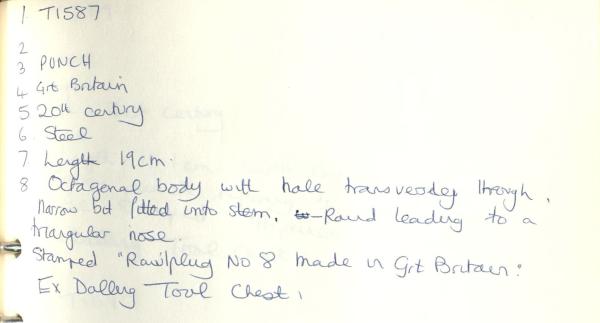 1 T1587
2
3 PUNCH
4 Grt Britain
5 20th century
6 Steel
7 Length 19cm.
8 Octagenal body with hole transversley through.
Narrow bit fitted into stem. Round leading to a
triangular nose.
Stamped "Rawlplug No 8 made in Grt Britain:
Ex Dalling Tool Chest.